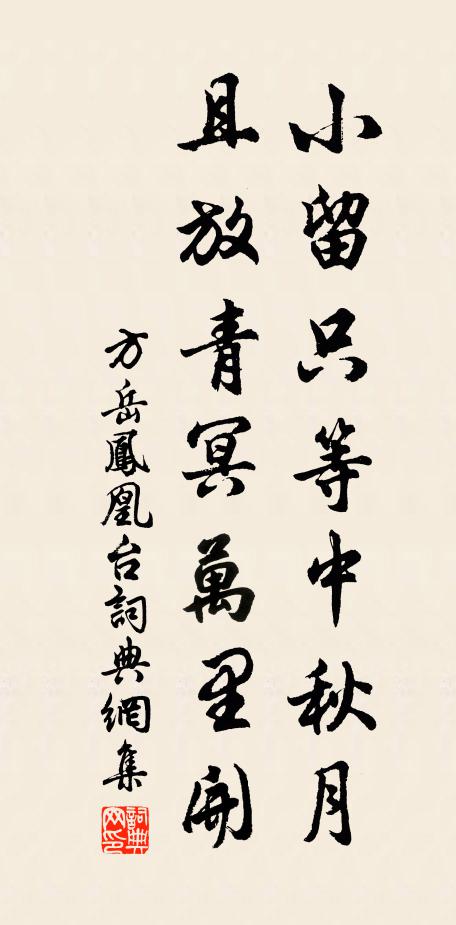 小留只等中秋月
且放青冥萬里開
方岳鳳凰台詞典網集
詞典網印